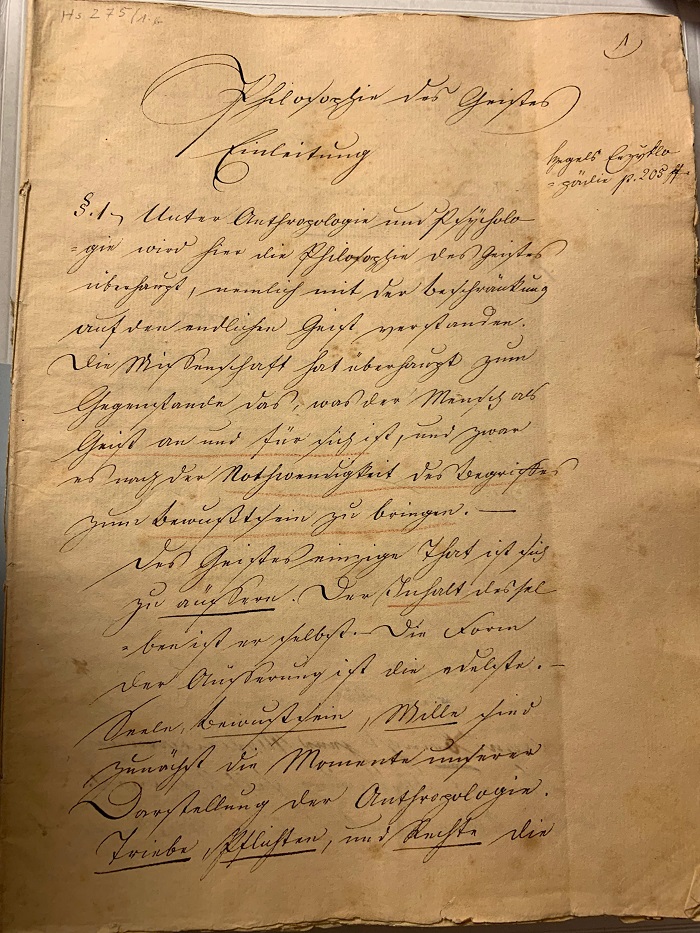 Hs 275/1.
1)
Philosophie des Geistes
Einleitung
Hegels Enzyklo
=pädie p. 205 ff
§. 1, Unter Anthropologie und Psÿcholo
=gie wird hier die Philosophie des Geistes
überhaupt, nemlich mit der Beschränkung
auf den endlichen Geist verstanden.
Die Wissenschaft hat überhaupt zum
Gegenstande das, was der Mensch als
Geist an und für sich ist, und zwar
es nach der Nothwendigkeit des Begriffes
zum Bewußtsein zu bringen. —
Des Geistes einzige That ist sich
zu äussern. Der Inhalt dessel
=ben ist er selbst. – Die Form
der Äusserung ist die edelste. –
Seele, Bewustsein, Wille sind
zunächst die Momente unserer
Darstellung der Anthropologie.
Triebe, Pflichten, und Rechte die